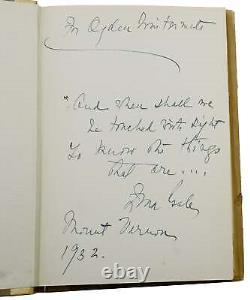 For Ogden
"And when shall we
be touched with sight
To know the things
that are....
Zona Gale
Mount Vernon
1932.
ebay